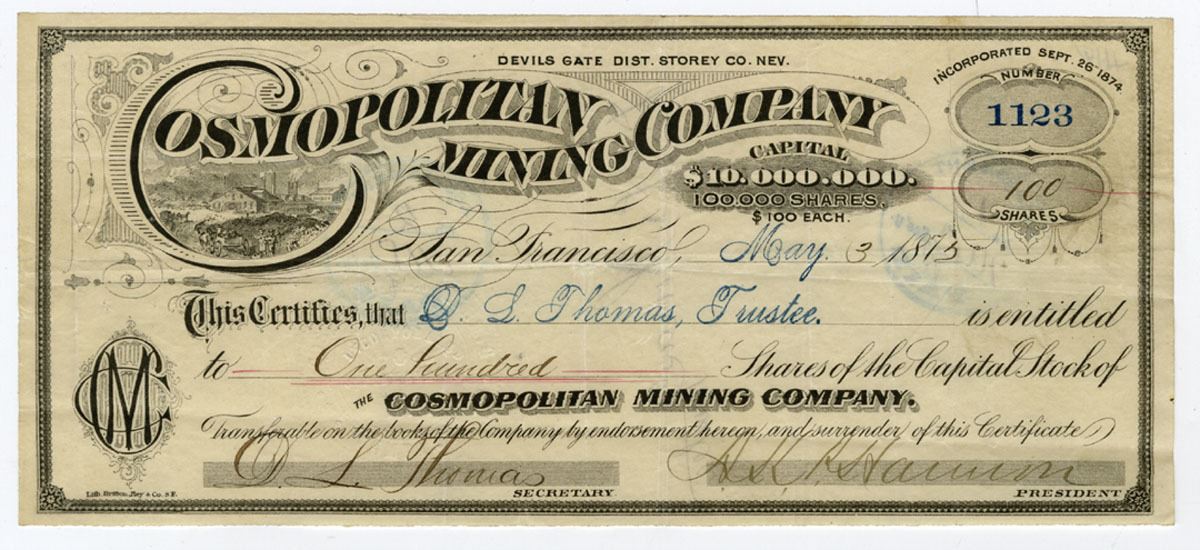 DEVILS GATE DIST. STOREY CO. NEV.
INCORPORATED SEPT. 26 1874
NUMBER
1123
COSMOPOLITAN
MINING COMPANY
CAPITAL
$10.000.000.
100.000 SHARES.
$100 EACH.
100
SHARES
San Francisco, May. 3 1875
This Certifies, that D. L. Thomas, Trustee. is entitled
to One hundred Shares of the Capital Stock of
THE COSMOPOLITAN MINING COMPANY.
Transferable on the books of the Company by endorsement hereon, and surrender of this Certificate
CMC
D L Thomas
SECRETARY.
PRESIDENT
Lith. Britton, Rey & Co. S.F.